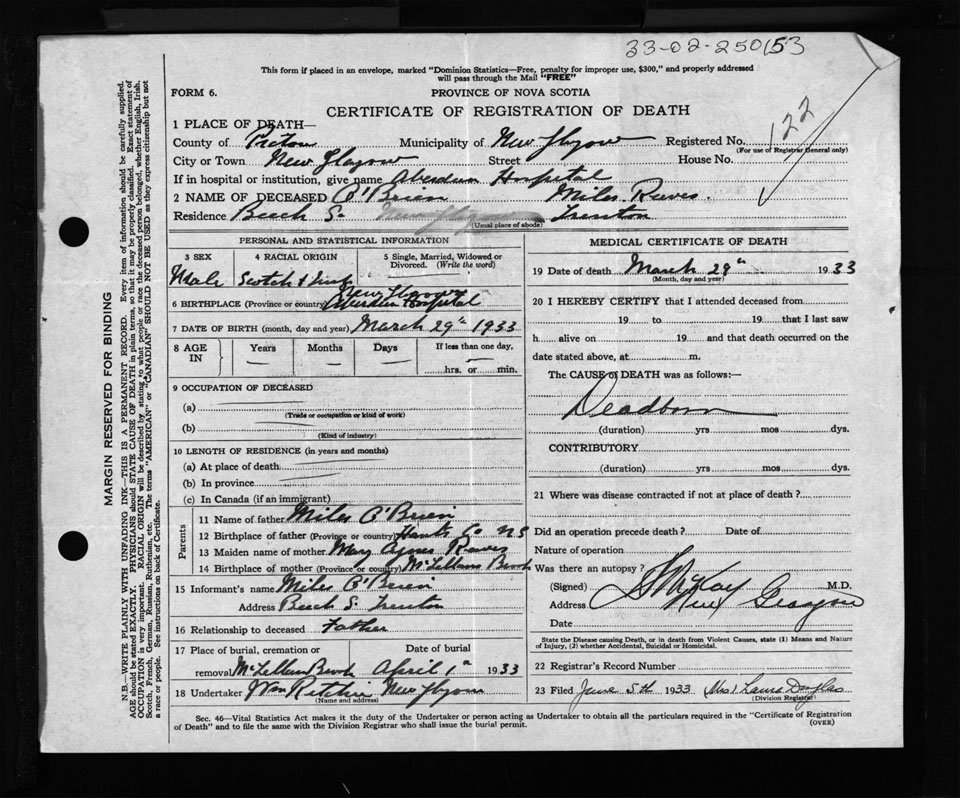 33-02-250153
This form if placed in an envelope, marked "Dominion Statistics—Free, penalty for improper use, $300," and properly addressed
will pass through the Mail "FREE"
FORM 6.
PROVINCE OF NOVA SCOTIA
CERTIFICATE OF REGISTRATION OF DEATH
122
1 PLACE OF DEATH—
County of Pictou Municipality of New Glasgow Registered No.
(For use of Registrar General only)
City or Town New Glasgow Street House No.
If in hospital or institution, give name Aberdeen Hospital
2 NAME OF DECEASED O'Brien Miles Reeves.
Residence Beech S. New Glasgow Trenton
(Usual place of abode)
PERSONAL AND STATISTICAL INFORMATION
3 SEX 4 RACIAL ORIGIN 5 Single, Married, Widowed or
Divorced. (Write the word)
Male Scotch & Irish
New Glasgow
6 BIRTHPLACE (Province or country) Aberdeen Hospital
7 DATE OF BIRTH (month, day and year) March 29th 1933
8 AGE IN Years Months Days If less than one day,
hrs. or min.
9 OCCUPATION OF DECEASED
(a)
(Trade or occupation or kind of work)
(b)
(Kind of industry)
10 LENGTH OF RESIDENCE (in years and months)
(a) At place of death
(b) In province
(c) In Canada (if an immigrant)
Parents
11 Name of father Miles O'Brien
12 Birthplace of father (Province or country) Hants Co NS
13 Maiden name of mother Mary Agnes Reeves
14 Birthplace of mother (Province or country) McLellans Brook
15 Informant's name Miles O'Brien
Address Beech S. Trenton
16 Relationship to deceased Father
17 Place of burial, cremation or Date of burial
removal McLellans Brook April 1st 1933
18 Undertaker J Wm Ritchie New Glasgow
(Name and address)
MEDICAL CERTIFICATE OF DEATH
19 Date of death March 29th 1933
(Month, day and year)
20 I HEREBY CERTIFY that I attended deceased from
19 to 19 that I last saw
h alive on 19 and that death occurred on the
date stated above, at m.
The CAUSE of DEATH was as follows:—
Deadborn
(duration) yrs mos dys.
CONTRIBUTORY
(duration) yrs. mos. dys.
21 Where was disease contracted if not at place of death?
Did an operation precede death? Date of
Nature of operation
Was there an autopsy?
(Signed) McKay M.D.
Address New Glasgow
Date
State the Disease causing Death, or in death from Violent Causes, state (1) Means and Nature
of Injury, (2) whether Accidental, Suicidal or Homicidal.
22 Registrar's Record Number
23 Filed June 5th 1933 Mrs Laura Douglas
(Division Registrar)
Sec. 46—Vital Statistics Act makes it the duty of the Undertaker or person acting as Undertaker to obtain all the particulars required in the "Certificate of Registration
of Death" and to file the same with the Division Registrar who shall issue the burial permit.
(OVER)
MARGIN RESERVED FOR BINDING
N.B.—WRITE PLAINLY WITH UNFADING INK—THIS IS A PERMANENT RECORD. Every item of information should be carefully supplied.
AGE should be stated EXACTLY. PHYSICIANS should STATE CAUSE OF DEATH in plain terms, so that it may be properly classified. Exact statement of
OCCUPATION is very important. RACIAL ORIGIN will be described by stating to what people or race the deceased person belonged, whether English, Irish,
Scotch, French, German, Russian, Ruthenian, etc. The terms "AMERICAN" or "CANADIAN" SHOULD NOT BE USED as they express citizenship but not
a race or people. See instructions on back of Certificate.